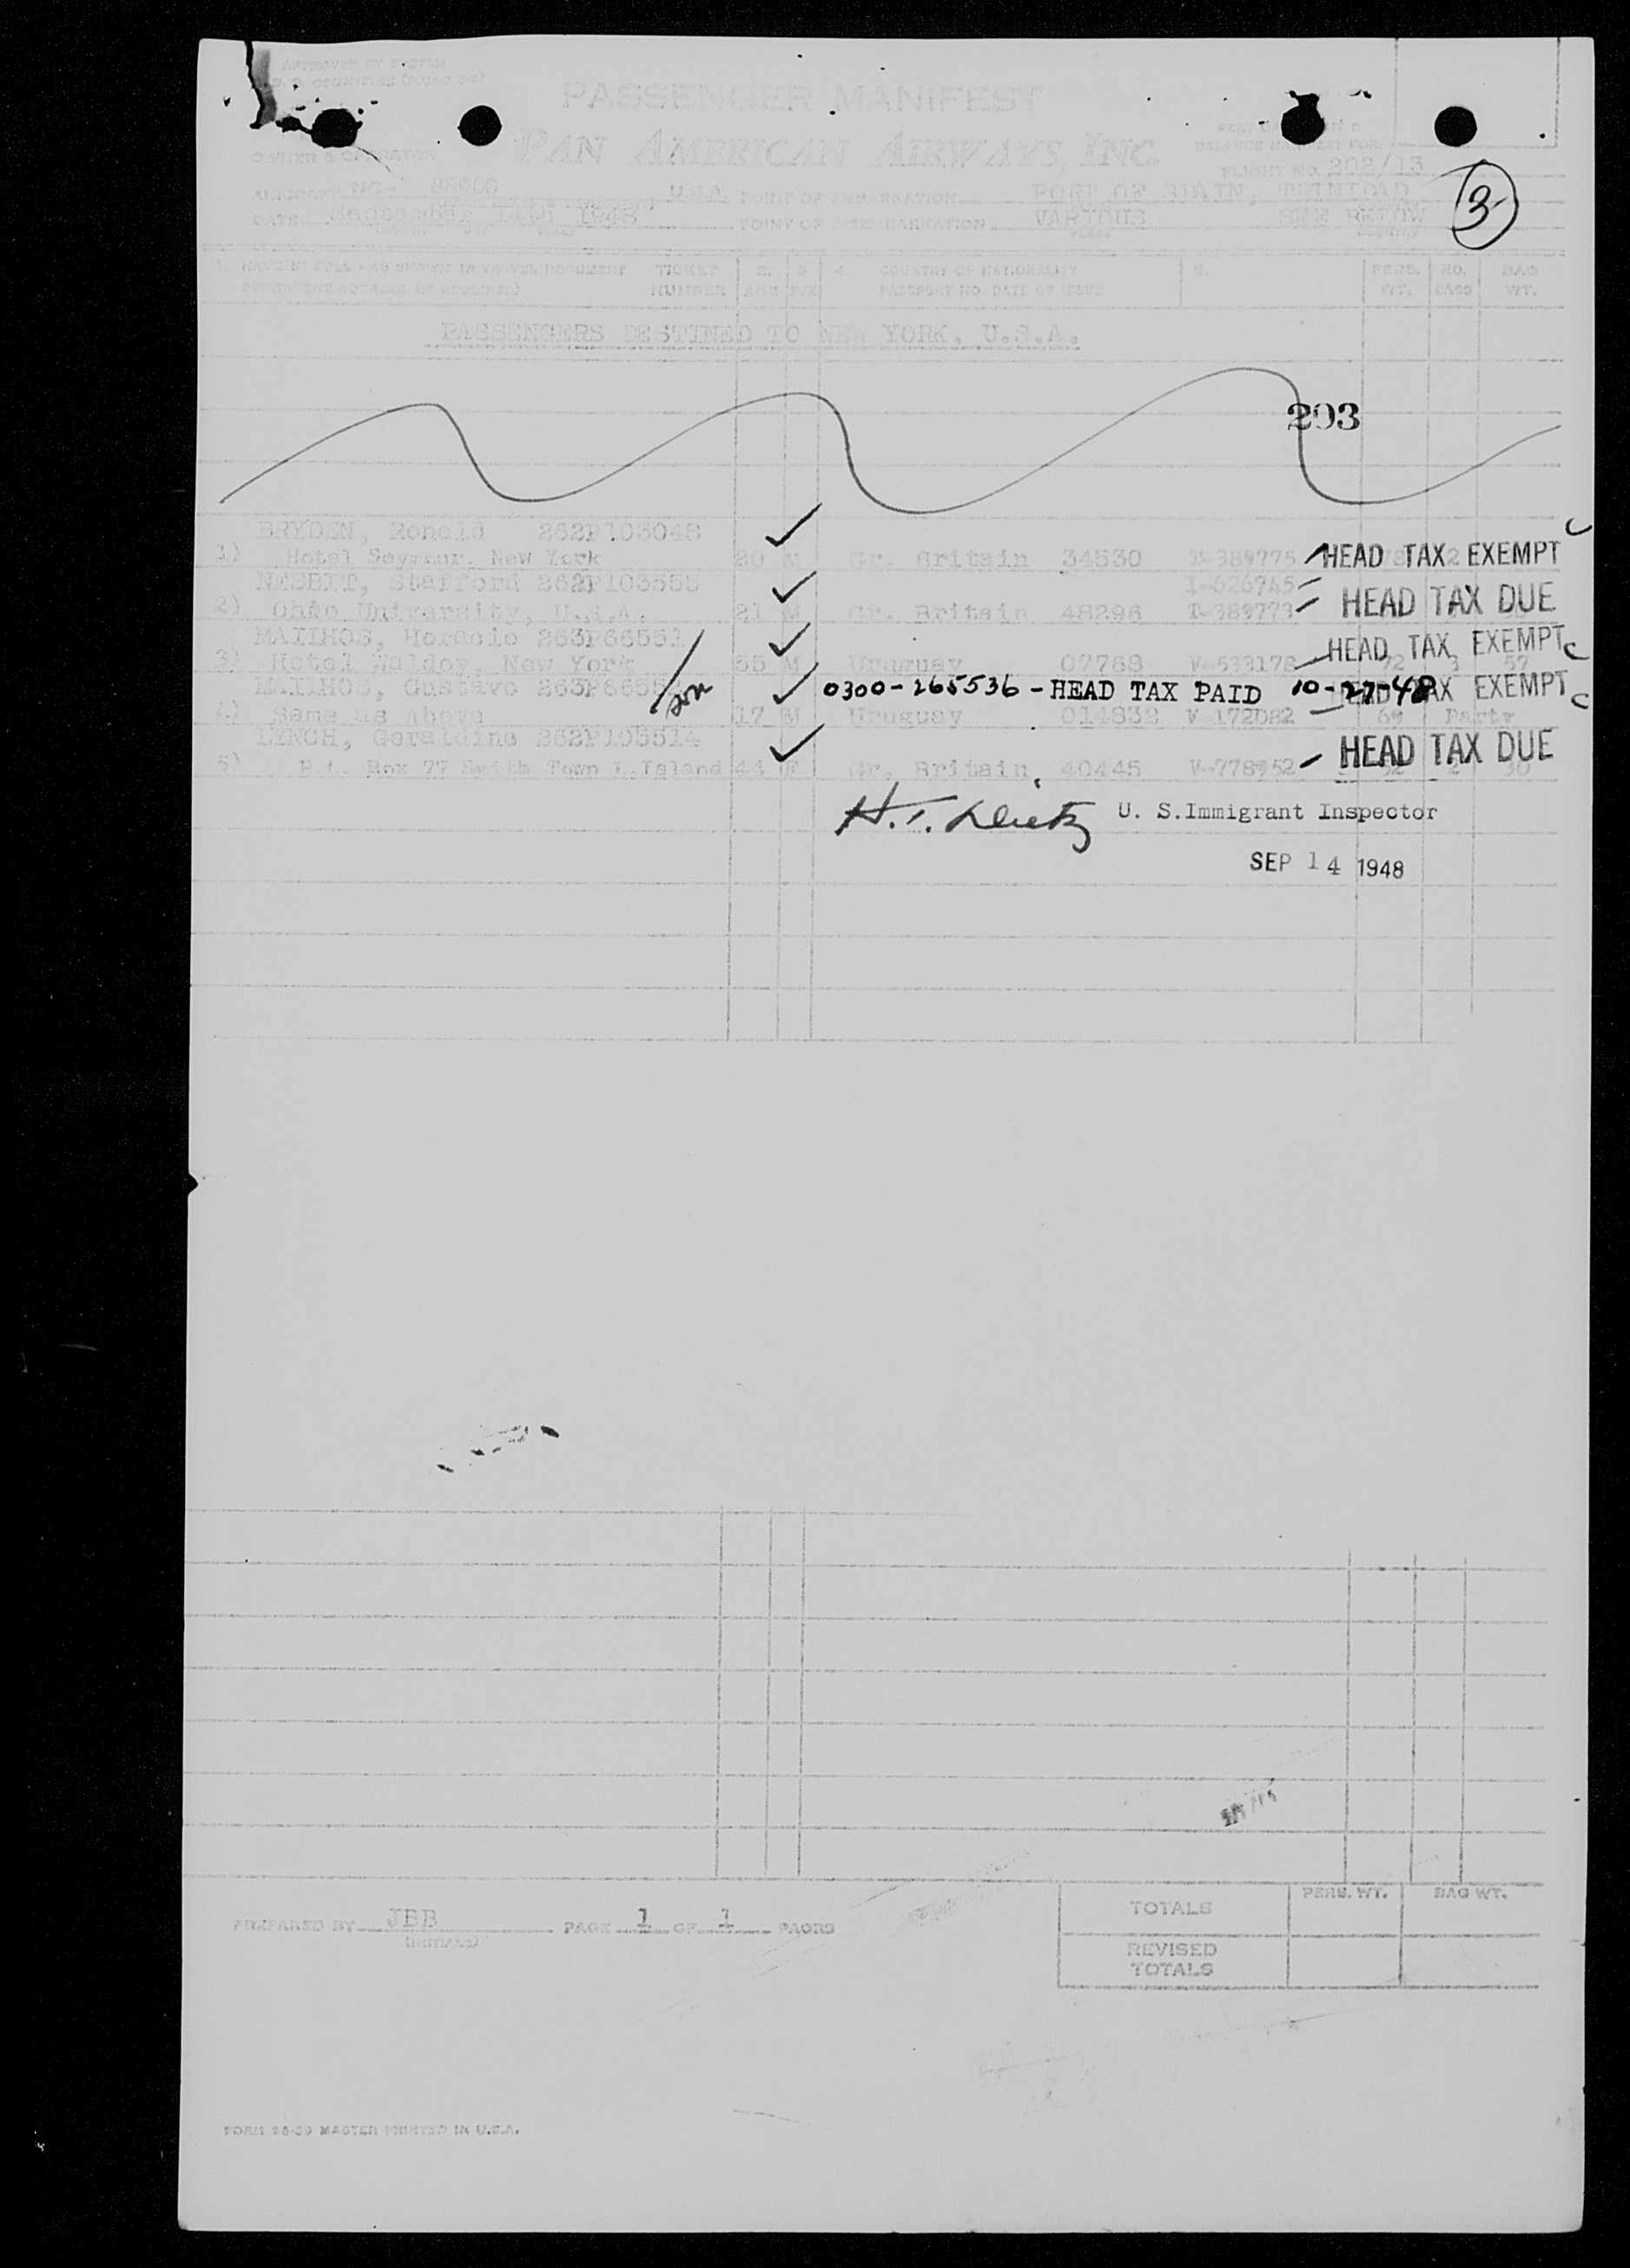 PASSENGER MANIFEST
PAN AMERICAN AIRWAYS, INC.
OWNER & OPERATOR
FLIGHT NO. 202/13
AIRCRAFT NC- 88900 U.S.A. POINT OF EMBARKATION PORT OF SPAIN, TRINIDAD
3
DATE September 14th 1948 POINT OF DISEMBARKATION VARIOUS SEE BELOW
1. NAME IN FULL - AS SHOWN IN TRAVEL DOCUMENT TICKET 2. 3 4. COUNTRY OF NATIONALITY 5. PERS. NO. BAG
NUMBER AGE SEX PASSPORT NO. DATE OF ISSUE WT. BAGS WT.
PASSENGERS DESTINED TO NEW YORK, U.S.A.
293
BRYDEN, Ronald 262P105048
1) Hotel Seymour, New York 20 M Gr. Britain 34530 T-389775 HEAD TAX EXEMPT
NESBIT, Stafford 262P105555 I-626745
2) Ohio University, U.S.A. 21 M Gr. Britain 48296 T-389773 HEAD TAX DUE
MAILHOS, Horacio 263P66551 HEAD TAX EXEMPT
3) Hotel Waldov, New York 55 M Uruguay 07788 V-533178 72 3 57
MAILHOS, Gustavo son 0300-265536-HEAD TAX PAID 10-27-48 HEAD TAX EXEMPT
4) Same as Above 17 M Uruguay 014832 V-172082 69 Party
LYNCH, Geraldine 262P105514 HEAD TAX DUE
5) P.O. Box 77 Smith Town L.Island 44 F Gr. Britain 40445 V-778952
U. S.Immigrant Inspector
SEP 14 1948
PREPARED BY JBB PAGE 1 OF 1 PAGES
(INITIALS)
PERS. WT. BAG WT.
TOTALS
REVISED
TOTALS
MASTER PRINTED IN U.S.A.